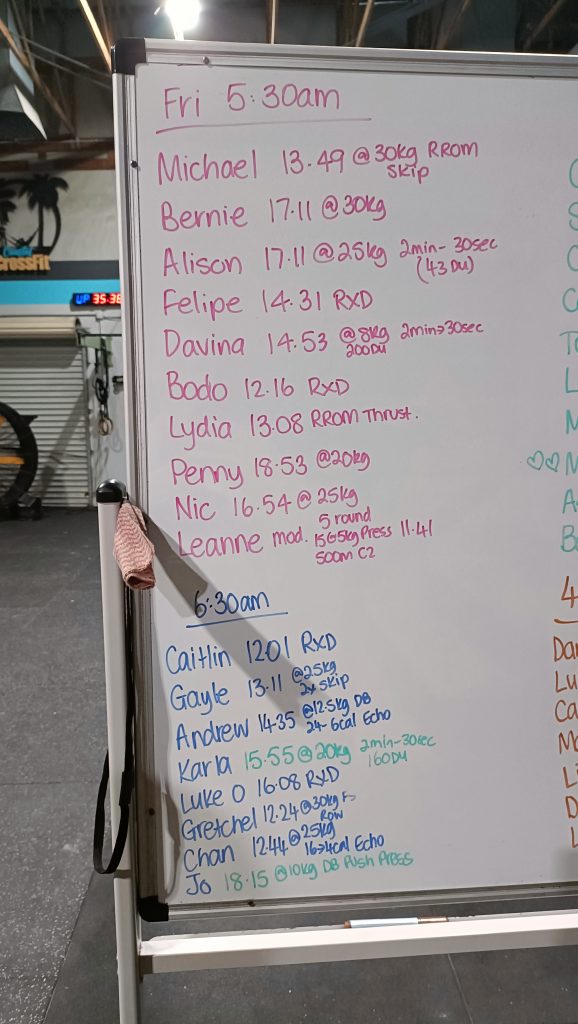 CrossFit
UP 35:38
Fri 5:30am
Michael 13.49 @30kg RROM
Skip
Bernie 17.11 @30kg
Alison 17.11 @25kg 2min-30sec
(43 DU)
Felipe 14.31 RXD
Davina 14.53 @8kg 2min→30sec
200DU
Bodo 12.16 RXD
Lydia 13.08 RROM Thrust.
Penny 18.53 @20kg
Nic 16.54 @25kg
Leanne mod. 5 round
15@5kg Press 11.41
500m C2
6:30am
Caitlin 12.01 RXD
Gayle 13.11 @25kg
2x skip
Andrew 14.35 @12.5kg DB
24-6cal Echo
Karla 15.55 @20kg 2min-30sec
160DU
Luke O 16.08 RXD
Gretchel 12.24 @30kg
Row
Chan 12.44 @25kg
16→4cal Echo
Jo 18.15 @10kg DB Push Press
4